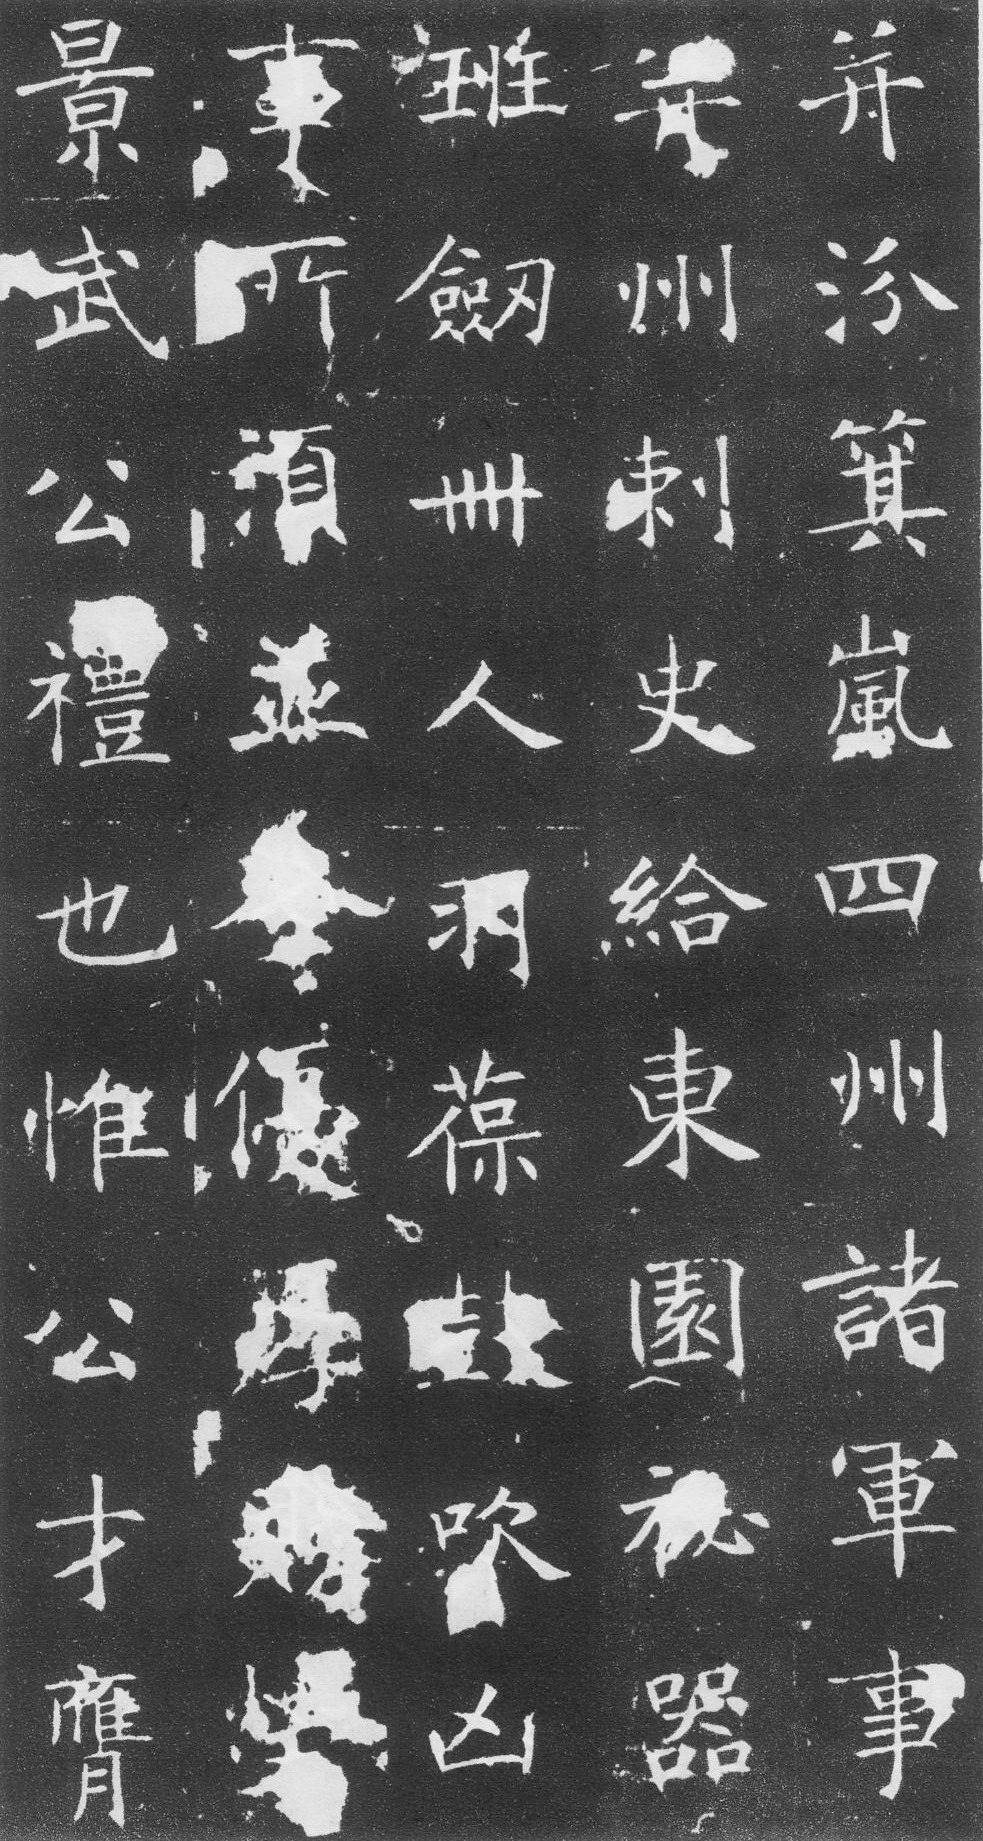 并汾箕嵐四州諸軍事
并州刺史給東園祕器
班劒卌人羽葆鼓吹凶
事所須並令優厚賜
景武公禮也惟公才膺